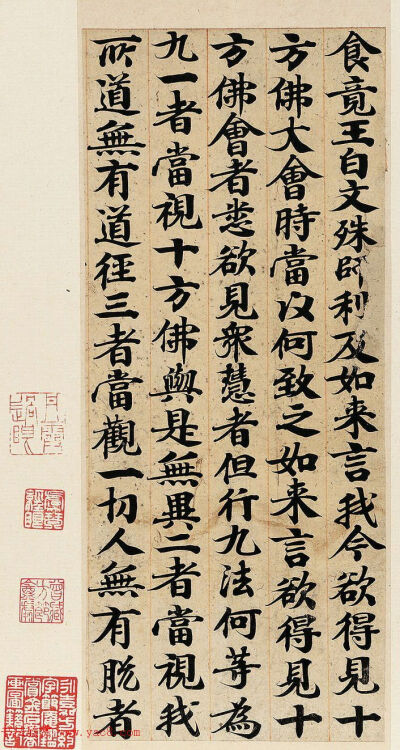 食竟王白文殊師利及如来言我今欲得見十
方佛大會時當以何致之如来言欲得見十
方佛會者悉欲見衆慧者但行九法何等為
九一者當視十方佛與是無異二者當視我
所道無有道徑三者當觀一切人無有脱者
www.yac8.com